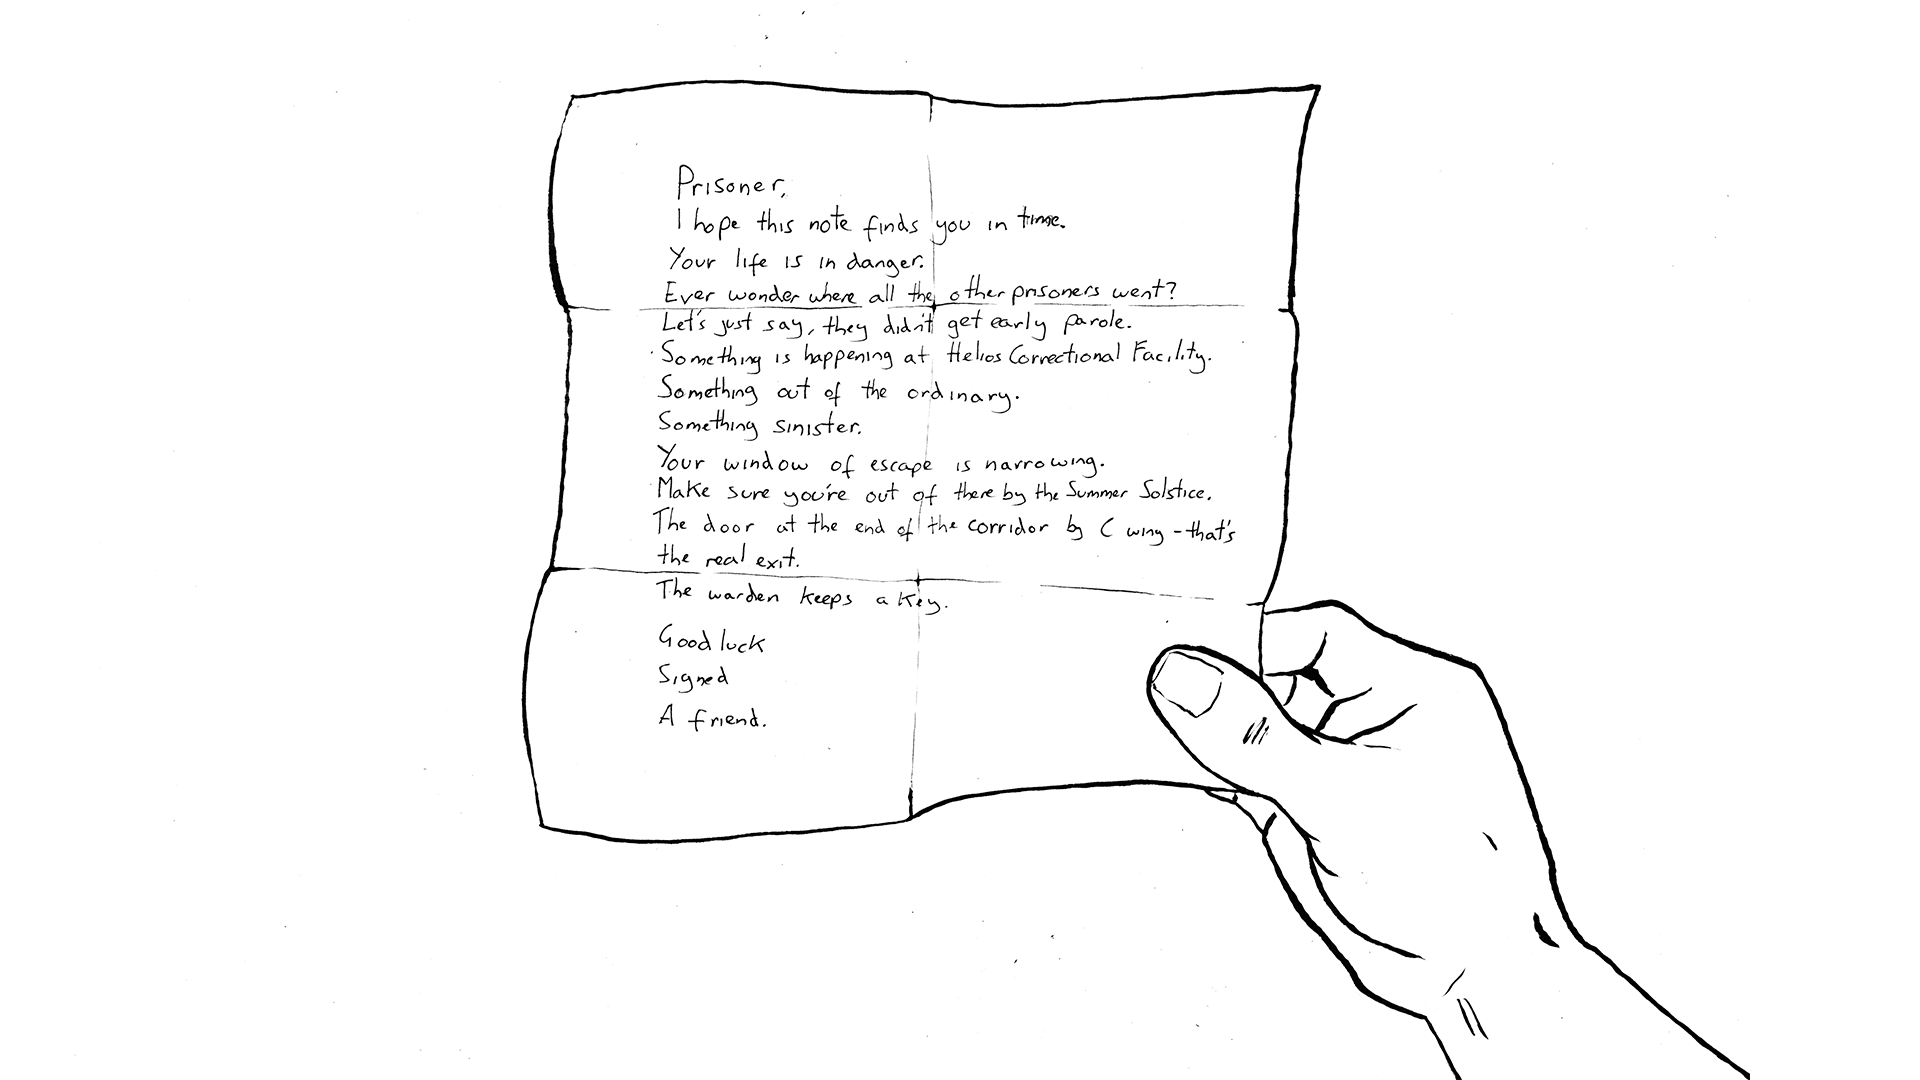 Prisoner,
I hope this note finds you in time.
Your life is in danger.
Ever wonder where all the other prisoners went?
Let's just say, they didn't get early parole.
Something is happening at Helios Correctional Facility.
Something out of the ordinary.
Something sinister.
Your window of escape is narrowing.
Make sure you're out of there by the Summer Solstice.
The door at the end of the corridor by C wing - that's
the real exit.
The warden keeps a key.
Good luck
Signed
A friend.